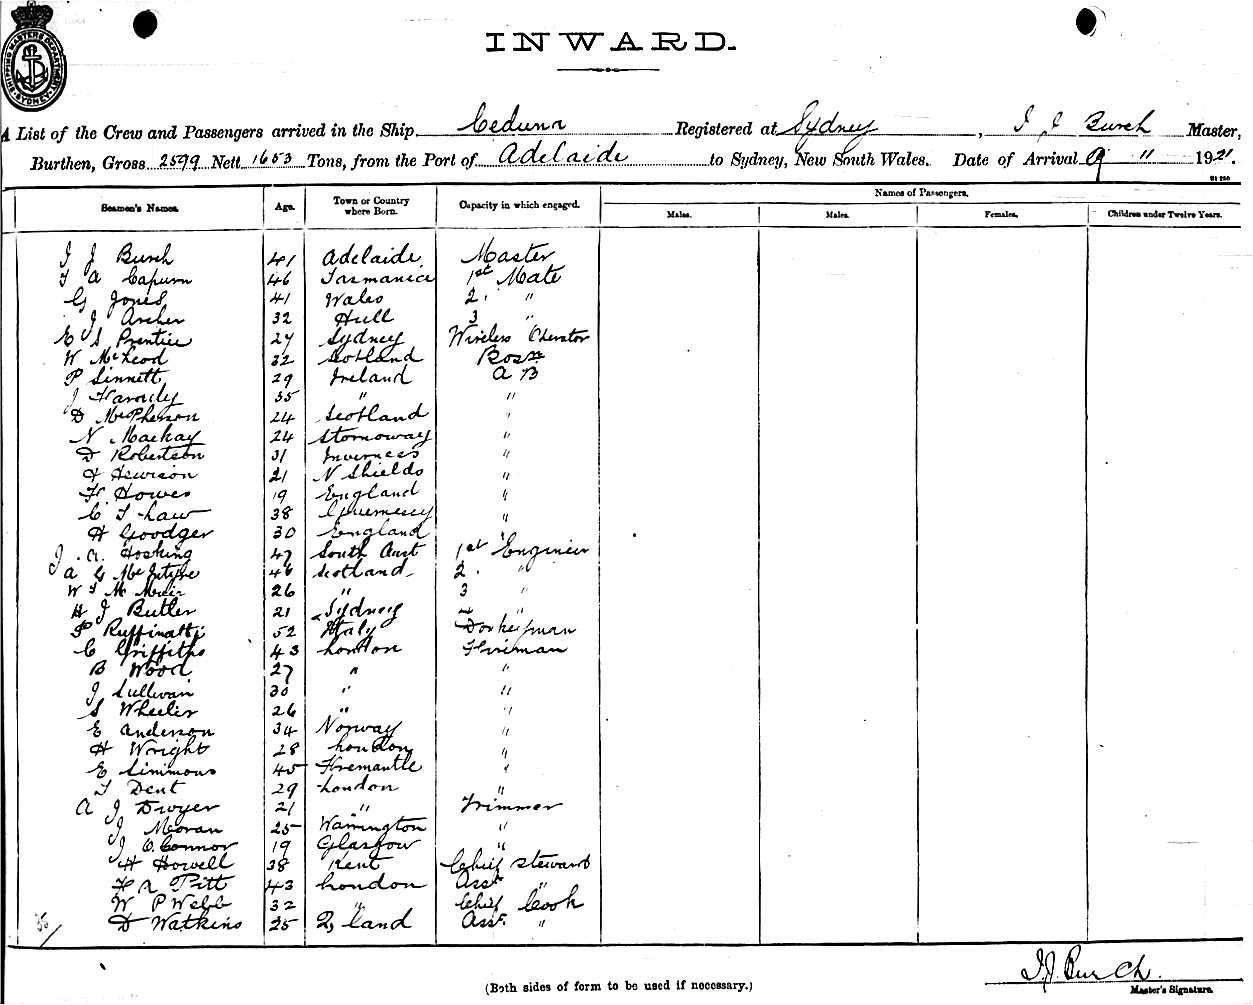 SHIPPING MASTERS DEPARTMENT SYDNEY
INWARD.
A List of the Crew and Passengers arrived in the Ship Ceduna Registered at Sydney, J J Burch Master,
Burthen, Gross 2599 Nett 1653 Tons, from the Port of Adelaide to Sydney, New South Wales. Date of Arrival 9 " 1921.
Seamen's Names. Age. Town or Country where Born. Capacity in which engaged. Names of Passengers.
Males. Males. Females. Children under Twelve Years.
J J Burch 41 Adelaide Master
T A Capurn 46 Tasmania 1st Mate
G Jones 41 Wales 2. "
J Archer 32 Hull 3 "
E S Prentice 27 Sydney Wireless Operator
W McLeod 32 Scotland Bosn
P Sinnett 29 Ireland A B
J 35 " "
D McPherson 24 Scotland "
N Mackay 24 Stornoway "
D Robertson 31 Inverness "
Hewison 21 N Shields "
F Howes 19 England "
C T Law 38 Guernesey "
H Goodger 30 England "
J. A. Hosking 47 South Aust 1st Engineer
A G McIntyre 46 Scotland 2. "
W T M Muir 26 " 3 "
H J Butler 21 Sydney 4 "
P Ruffinatti 52 Italy Donkeyman
C Griffiths 43 London Fireman
B Wood 27 " "
J Sullivan 30 " "
S Wheeler 26 " "
E Anderson 34 Norway "
H Wright 28 London "
E Simmons 45 Fremantle "
T Dent 29 London "
A J Dwyer 21 " Trimmer
J Moran 25 Warrington "
J O Connor 19 Glasgow "
H Howell 38 Kent Chief Steward
F A Pitt 43 London Asst "
W P Webb 32 " Chief Cook
D Watkins 25 Q land Asst. "
J J Burch.
(Both sides of form to be used if necessary.)
Master's Signature.